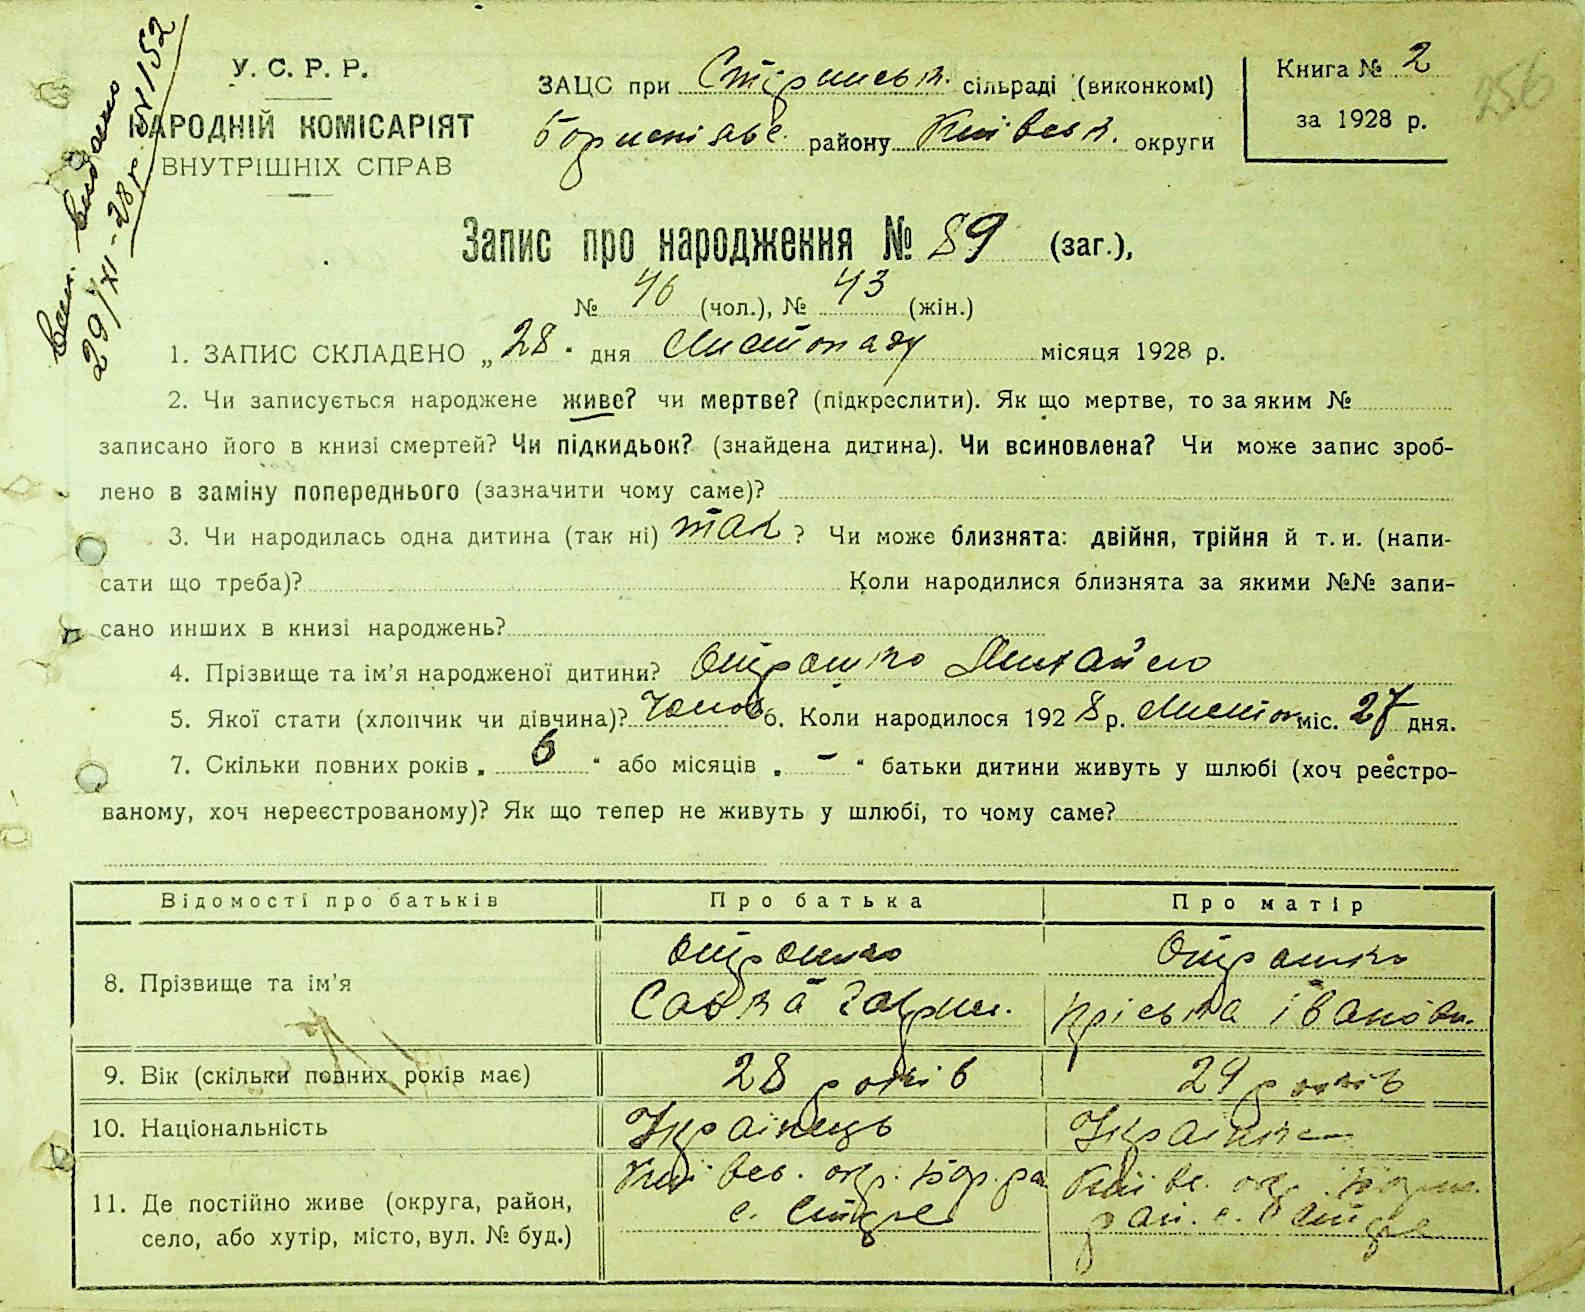 Вип. видано
29/XI-28 р. № 152
У. С. Р. Р.
НАРОДНІЙ КОМІСАРІЯТ
ВНУТРІШНІХ СПРАВ
ЗАЦС при Стірнськ. сільраді (виконкомі)
району Київськ. округи
Книга № 2
за 1928 р.
256
Запис про народження № 89 (заг.),
№ 46 (чол.), № 43 (жін.)
1. ЗАПИС СКЛАДЕНО „28" дня Листопаду місяця 1928 р.
2. Чи записується народжене живе? чи мертве? (підкреслити). Як що мертве, то за яким №
записано його в книзі смертей? Чи підкидьок? (знайдена дитина). Чи всиновлена? Чи може запис зроб-
лено в заміну попереднього (зазначити чому саме)?
3. Чи народилась одна дитина (так ні) так ? Чи може близнята: двійня, трійня й т. и. (напи-
сати що треба)? Коли народилися близнята за якими №№ запи-
сано инших в книзі народжень?
4. Прізвище та ім'я народженої дитини? Отрошко Михайло
5. Якої стати (хлопчик чи дівчина)? Чолов 6. Коли народилося 1928 р. Листоп міс. 27 дня.
7. Скільки повних років „ 6 " або місяців „ - " батьки дитини живуть у шлюбі (хоч реєстро-
ваному, хоч нереєстрованому)? Як що тепер не живуть у шлюбі, то чому саме?
Відомості про батьків Про батька Про матір
8. Прізвище та ім'я Отрошко Отрошко
Савка Гавр. Пріська Іванівн.
9. Вік (скільки повних років має) 28 років 29 років
10. Національність Українець Українка
11. Де постійно живе (округа, район, Київськ. окр. Бор. ра Київс. окр. Борис.
село, або хутір, місто, вул. № буд.) с. рай. с.